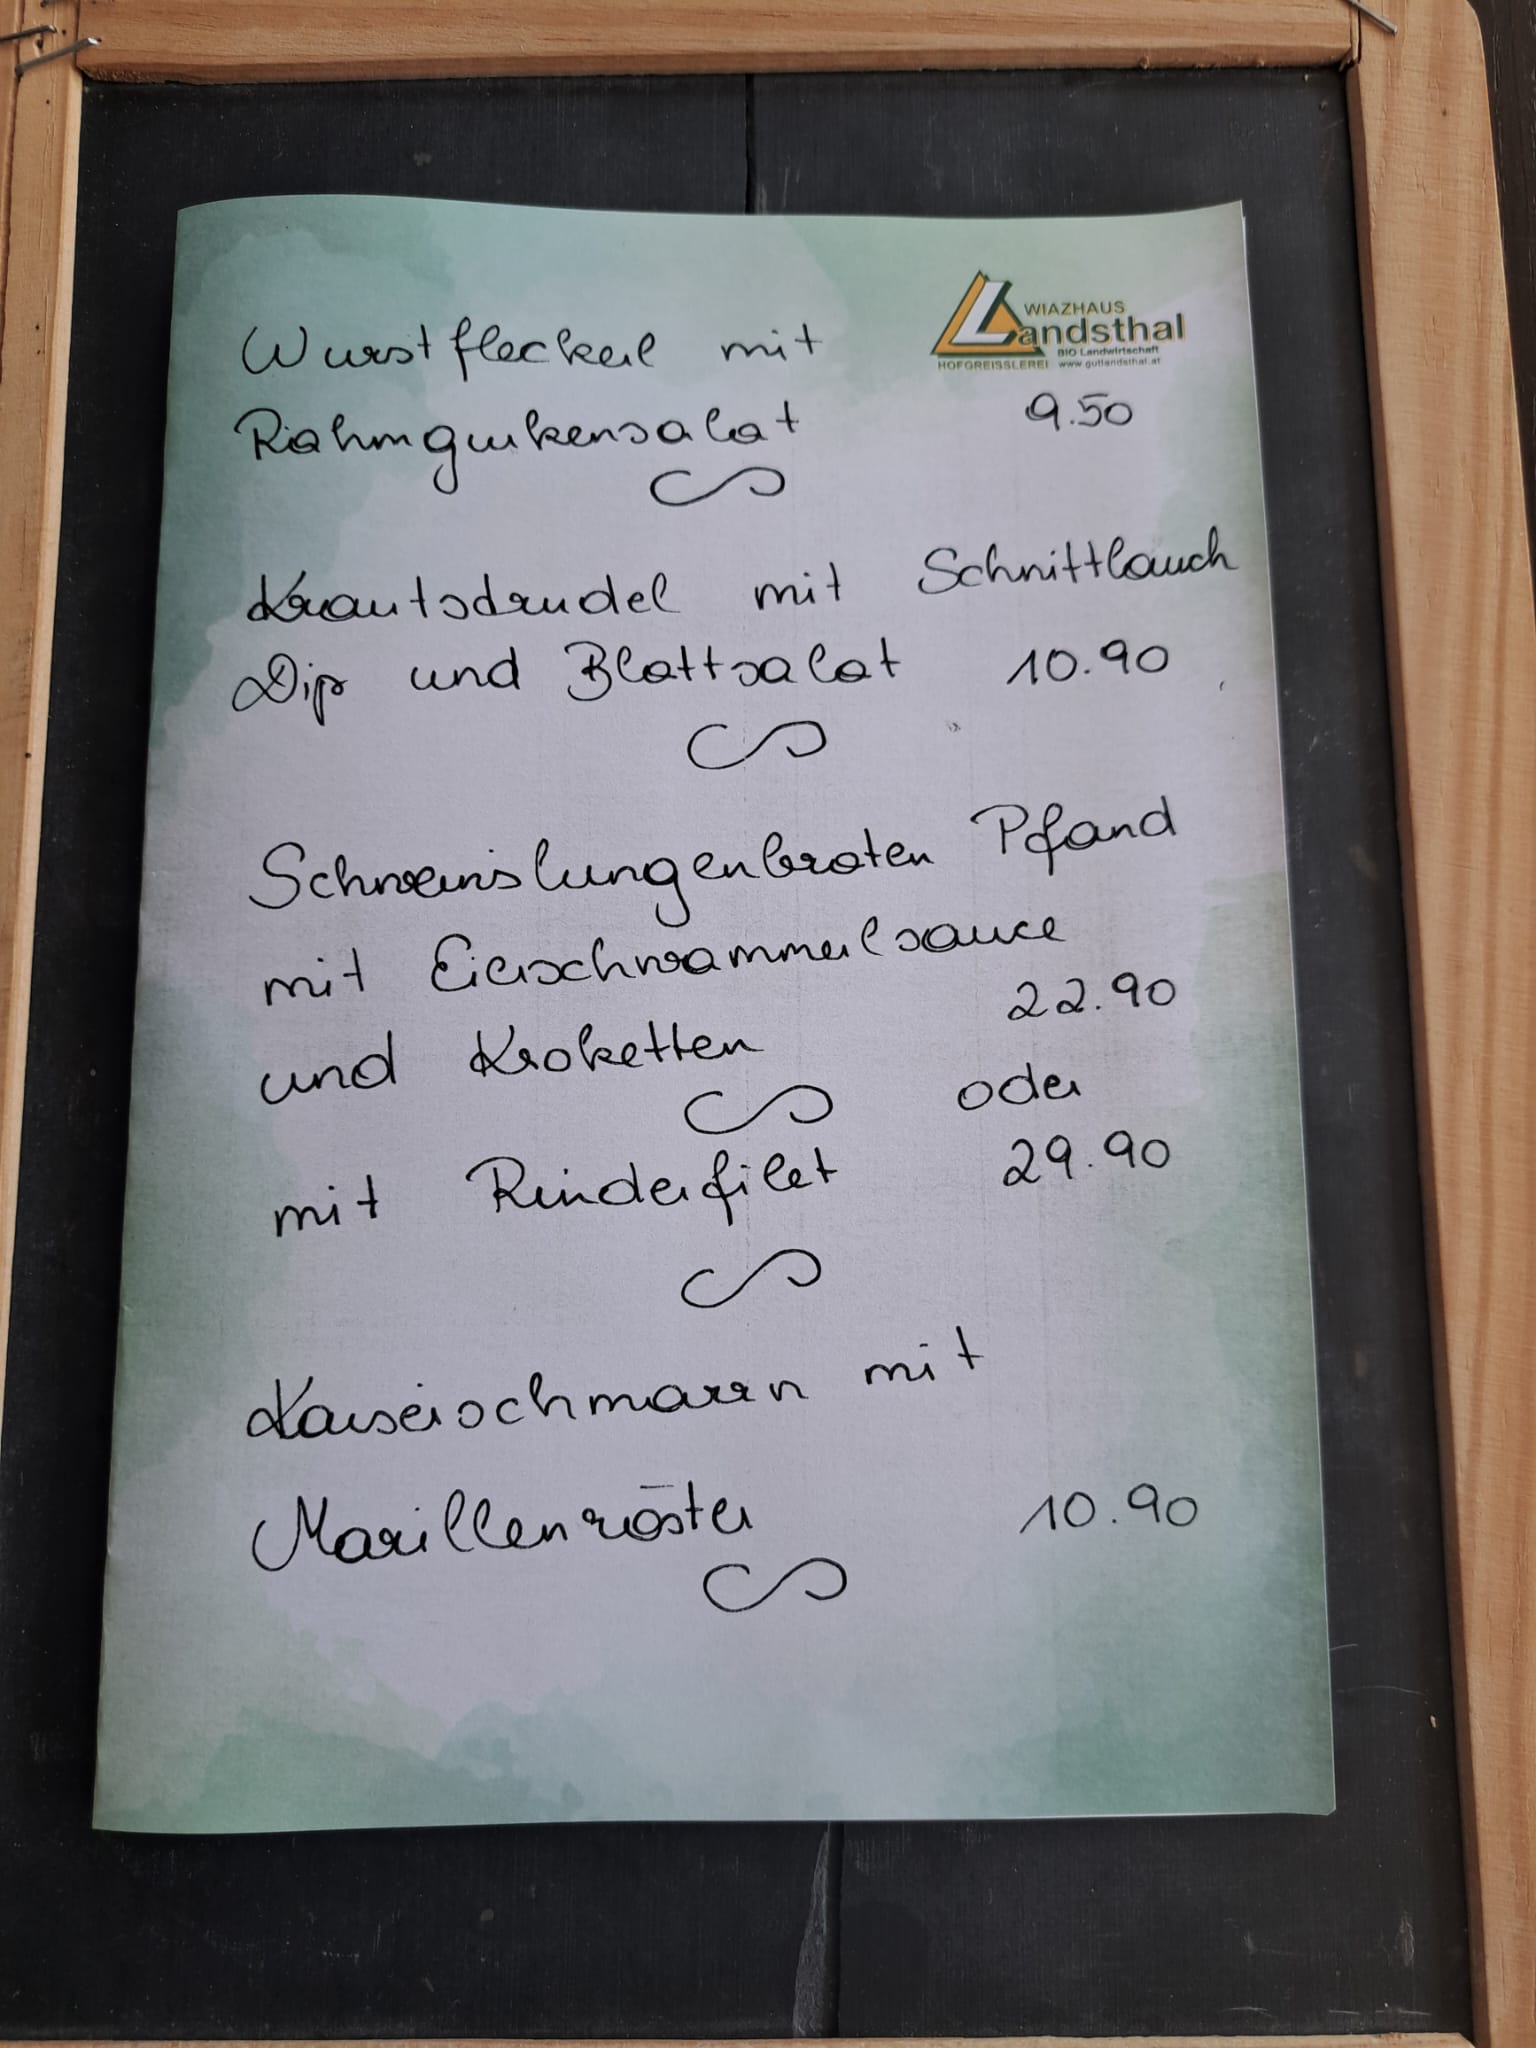 WIAZHAUS
Landsthal
BIO Landwirtschaft
HOFGREISSLEREI www.gutlandsthal.at
Wurstfleckerl mit
Rahmgurkensalat 9.50
Krautstrudel mit Schnittlauch
Dip und Blattsalat 10.90
Schweinslungenbraten Pfandl
mit Eierschwammerlsauce
und Kroketten 22.90
oder
mit Rinderfilet 29.90
Kaiserschmarrn mit
Marillenröster 10.90